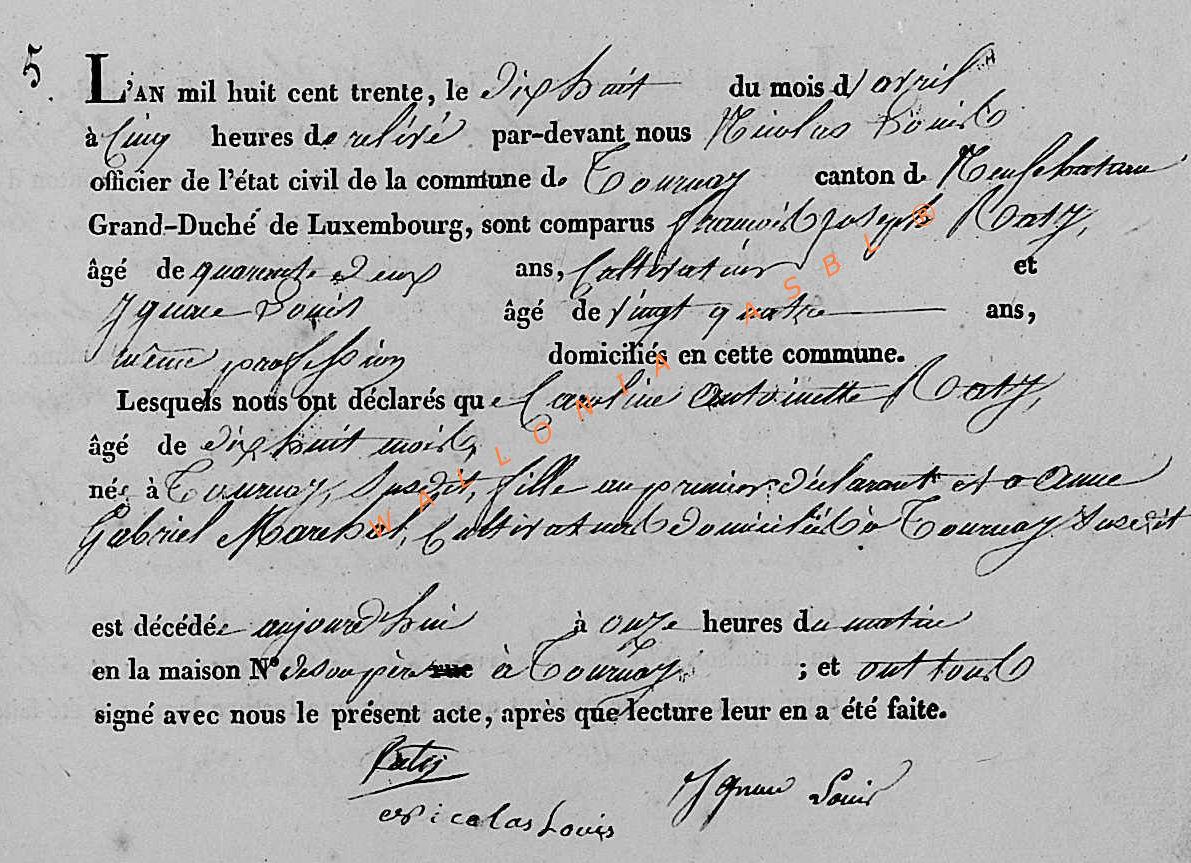 5.
L'AN mil huit cent trente, le dix huit du mois d'avril
à cinq heures de relevé par-devant nous Nicolas Louis
officier de l'état civil de la commune de Tournay canton de Neufchateau
Grand-Duché de Luxembourg, sont comparus françois joseph Raty,
âgé de quarante deux ans, Cultivateur et
Ignace Louis âgé de vingt quatre ans,
même profession domiciliés en cette commune.
Lesquels nous ont déclarés que Caroline Antoinette Raty,
âgé de dix huit mois,
née à Tournay, susdit, fille au premier déclarant et a Anne
Gabriel Marchot, Cultivateurs domiciliés à Tournay susdit
est décédée aujourd'hui à onze heures du matin
en la maison N° de son père rue à Tournay ; et ont tous
signé avec nous le présent acte, après que lecture leur en a été faite.
Raty
Ignace Louis
Nicolas Louis
WALLONIA ASBL ®